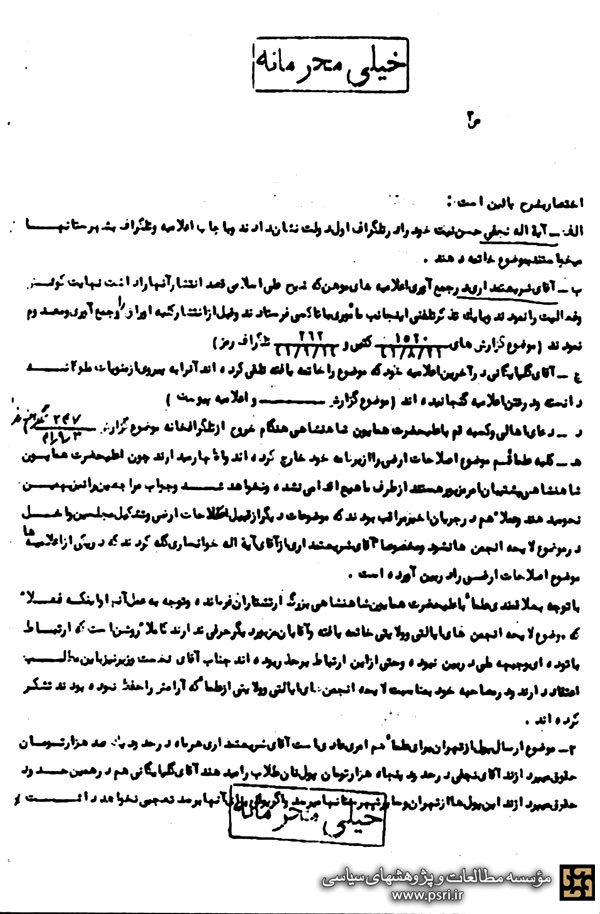 خیلی محرمانه
اختصار بشرح پائین است :
الف ـ آیة اله نجفی حسن نیت خود را در تلگراف اول دولت نشان دادند و با چاپ اعلامیه و تلگراف بشهرستانها
میخواستند موضوع خاتمه دهند .
ب ـ آقای شریعتمداری در جمع آوری اعلامیه های موهن که
و فعالیت را نمودند و با یک تذکر تلفنی اینجانب مأموری با تاکسی فرستادند و قبل از انتشار کلیه اوراق را جمع آوری و معدوم
نمودند ( موضوع گزارش های ۱۵۲۰ کتبی و ۲۶۲ تلگراف رمز )
ج ـ آقای گلپایگانی در آخرین اعلامیه خود که موضوع را خاتمه یافته تلقی کرده اند آنرا به پیروی از منویات ملوکانه
دانسته و در متن اعلامیه گنجانیده اند ( موضوع گزارش و اعلامیه پیوست )
د ـ دعای اهالی و کسبه قم باعلیحضرت همایون شاهنشاهی هنگام خروج از تلگرافخانه موضوع گزارش ۲۴۷
هـ ـ کلیه علما قم موضوع اصلاحات ارضی را از برنامه خود خارج کرده اند و اظهار میدارند چون اعلیحضرت همایون
شاهنشاهی پشتیبان امر مزبور هستند از طرف ما هیچ اقدامی نشده و نخواهد شد و جواب مراجعین را نیز بهمین
نحو میدهند و عملا هم در جریان اخیر مراقب بودند که موضوعات دیگر از قبیل اصلاحات ارضی و تشکیل مجلسین داخل
در موضوع لایحه انجمن ها نشود و مخصوصا آقای شریعتمداری از آقای آیة اله خوانساری گله کردند که در یکی از اعلامیه ها
موضوع اصلاحات ارضی را در بین آورده است .
با توجه بعلاقمندی علما باعلیحضرت همایون شاهنشاهی بزرگ ارتشتاران فرمانده و توجه به عمل آنها و اینکه فعلا
که موضوع لایحه انجمن های ایالتی و ولایتی خاتمه یافته و آقایان مزبور دیگر حرفی ندارند کاملا روشن است که ارتباط
با توده ای و جبهه ملی در بین نبوده و حتی از این ارتباط بر حذر بوده اند جناب آقای نخست وزیر نیز باین مطلب
اعتقاد دارند و در مصاحبه خود بمناسبت لایحه انجمن های ایالتی و ولایتی از علما که آرامش را حفظ نموده بودند تشکر
کرده اند .
۲ ـ موضوع ارسال پول از تهران برای علما هم امری عادی است آقای شریعتمداری هر ماه در حدود یکصد هزار تومان
حقوق میپردازند آقای نجفی در حدود پنجاه هزار تومان پول نان طلاب را میدهند آقای گلپایگانی هم در همین حدود
حقوق میپردازند این پول ها از تهران و سایر شهرستانها میرسد و اگر پولی برای آنها برسد تعجبی نخواهد داشت
خیلی محرمانه
مؤسسه مطالعات و پژوهشهای سیاسی
www.psri.ir